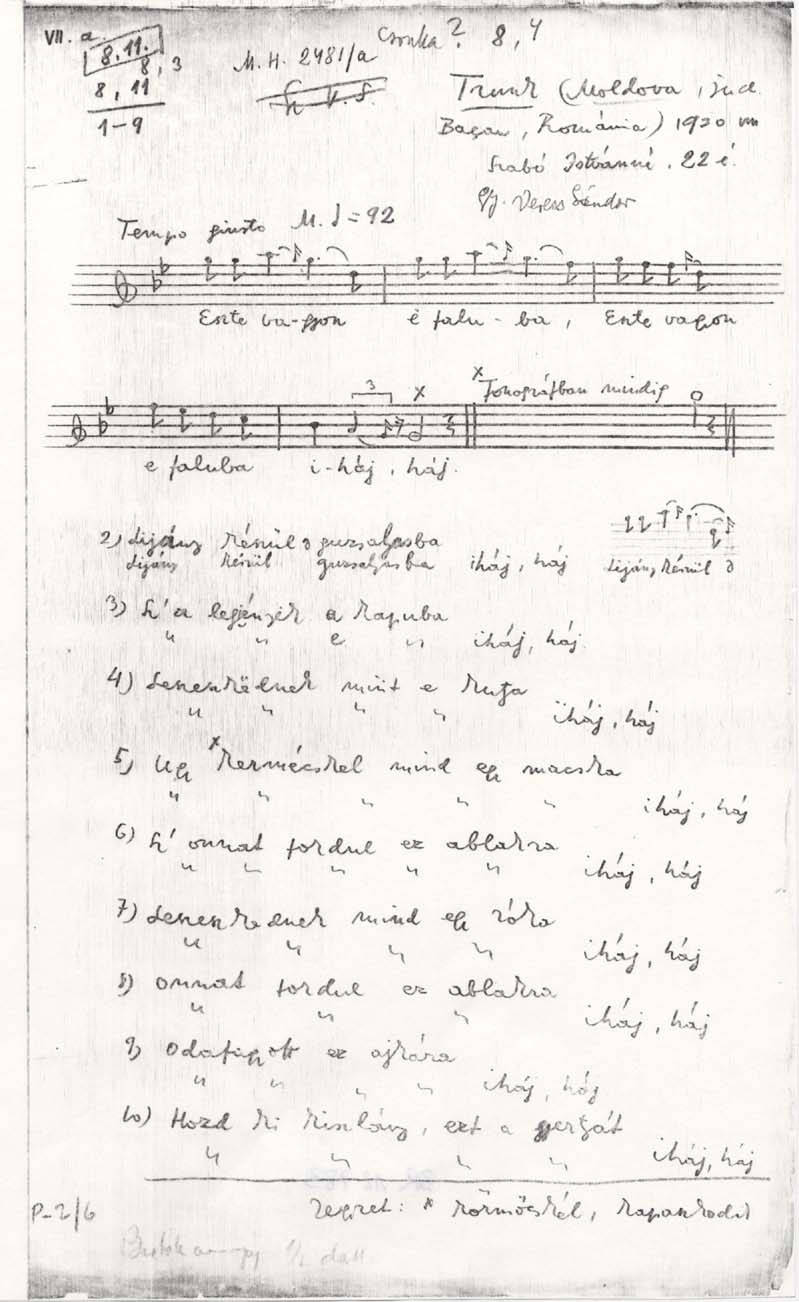 VII. a.
8.11.
8, 3
8, 11
1-9
M. H. 2481/a
Csonka? 8, 4
Trunk (Moldova, jud.
Bacau, Románia) 1930
Szabó Istvánné. 22 é.
Gy. Veress Sándor
Tempo giusto M. ♩ = 92
Este va-gyon e falu-ba, Este vagyon
3
x
x Fonográfban mindig
e faluba i-háj, háj.
2) Lijány készül a guzsalyasba
Lijány készül guzsalyasba iháj, háj
Lijány készül a
3) S' a legények a kapuba
" " e " iháj, háj.
4) Leseskednek mint e kutya
" " " " iháj, háj
5) Ugy x kermécskél mind egy macska
" " " " " iháj, háj
6) S' onnat fordul ez ablakra
" " " " " iháj, háj
7) Leseskednek mind egy róka
" " " " iháj, háj
8) onnat fordul ez ablakra
" " " iháj, háj
9) Odafutott ez ajtóra
" " " " iháj, háj
10) Hozd ki kislány, ezt a gyertyát
" " " " iháj, háj
P-2/6
Jegyzet: x körmöcskél, kapaszkodik